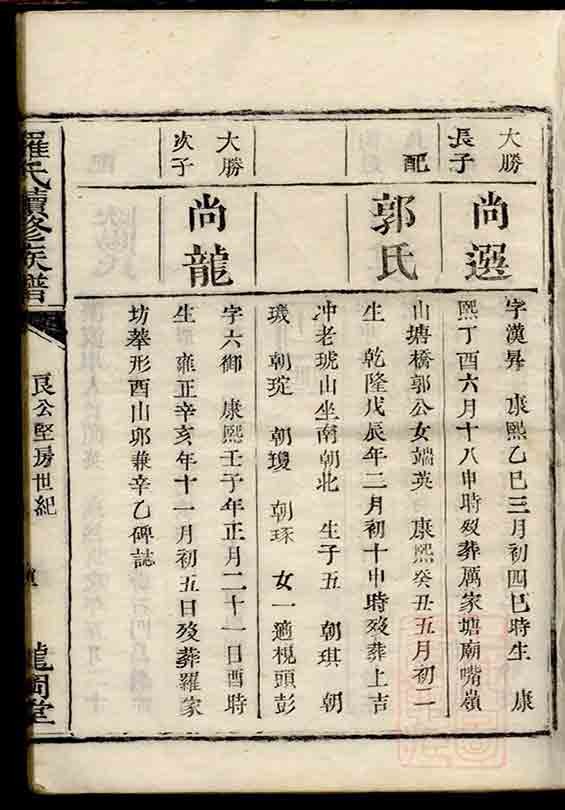 大勝
長子
尚選
字漢昇　康熙乙巳三月初四巳時生　康
熙丁酉六月十八申時歿葬厲家塘廟嘴嶺
配
郭氏
山塘橋郭公女端英　康熙癸丑五月初二
生　乾隆戊辰年二月初十申時歿葬上吉
冲老琥山坐南朝北　生子五　朝琪　朝
璣　朝琁　朝瓊　朝琢　女一適梘頭彭
大勝
次子
尚龍
字六御　康熙壬子年正月二十一日酉時
生　雍正辛亥年十一月初五日歿葬羅家
坊茅形酉山卯兼辛乙碑誌
羅氏續修族譜
良公堅房世紀
龍岡堂